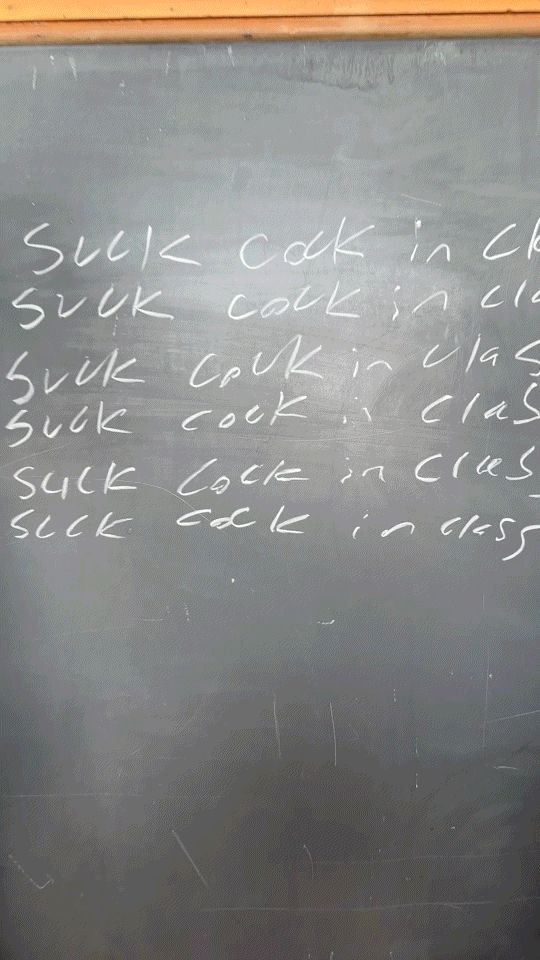 Suck cock in cl
Suck cock in cla
Suck cock in clas
Suck cock in clas
suck cock in clas
suck cock in class